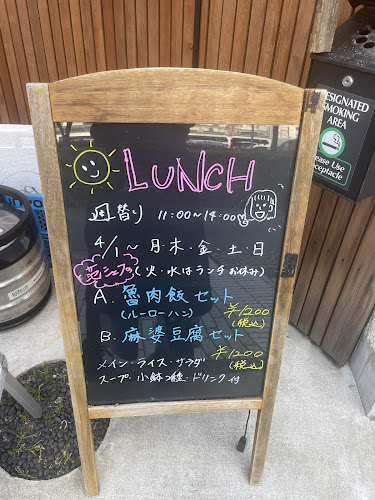 LUNCH
週替り 11:00~14:00
4/1~ 月・木・金・土・日
(火・水はランチお休み)
A. 魯肉飯セット
(ルーローハン) ¥1200
(税込)
B. 麻婆豆腐セット
¥1200
(税込)
メイン・ライス・サラダ
スープ・小鉢2種・ドリンク付
DESIGNATED
SMOKING
AREA
Please Use
Receptacle